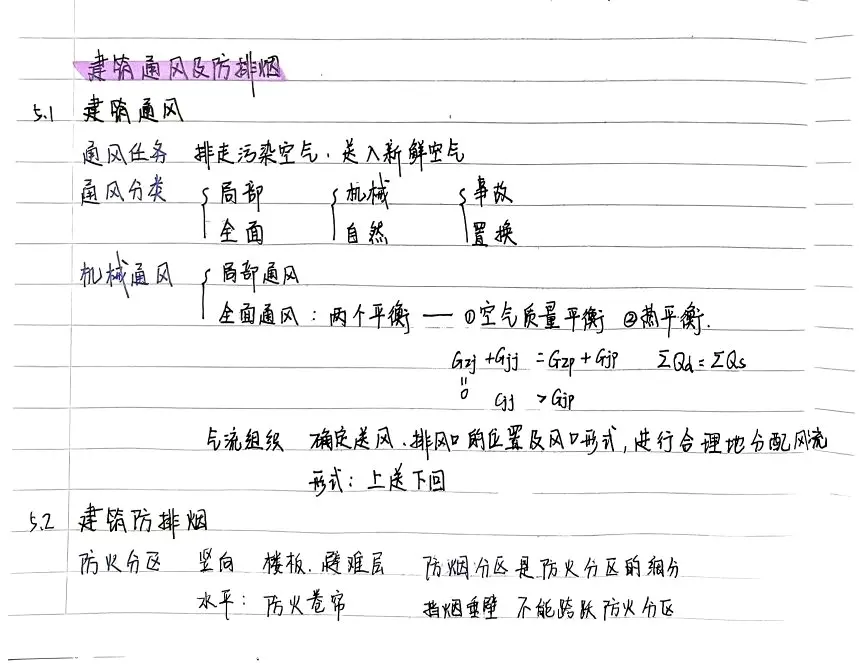 建筑通风及防排烟
5.1 建筑通风
通风任务 排走污染空气、送入新鲜空气
通风分类 { 局部 { 机械 { 事故
全面 自然 置换
机械通风 { 局部通风
全面通风：两个平衡 — ①空气质量平衡 ②热平衡.
Gzj + Gjj = Gzp + Gjp ΣQd = ΣQs
=
0 Gjj > Gjp
气流组织 确定送风、排风口的位置及风口形式，进行合理地分配风流
形式：上送下回
5.2 建筑防排烟
防火分区 竖向 楼板、避难层 防烟分区是防火分区的细分
水平：防火卷帘 挡烟垂壁 不能跨跃防火分区